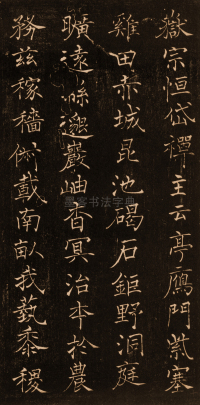 嶽宗恒岱禪主云亭鴈門紫塞
雞田赤城昆池碣石鉅野洞庭
曠遠緜邈巖岫杳冥治本於農
務茲稼穡俶載南畝我藝黍稷
墨客书法字典